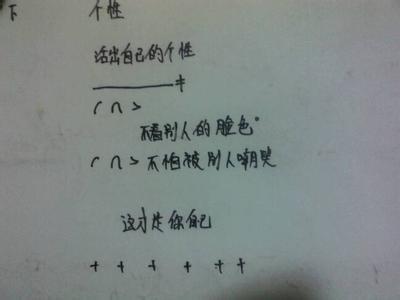 下 个性
活出自己的个性
不看别人的脸色。
不怕被别人嘲笑
这才是你自己
+ + + + + +